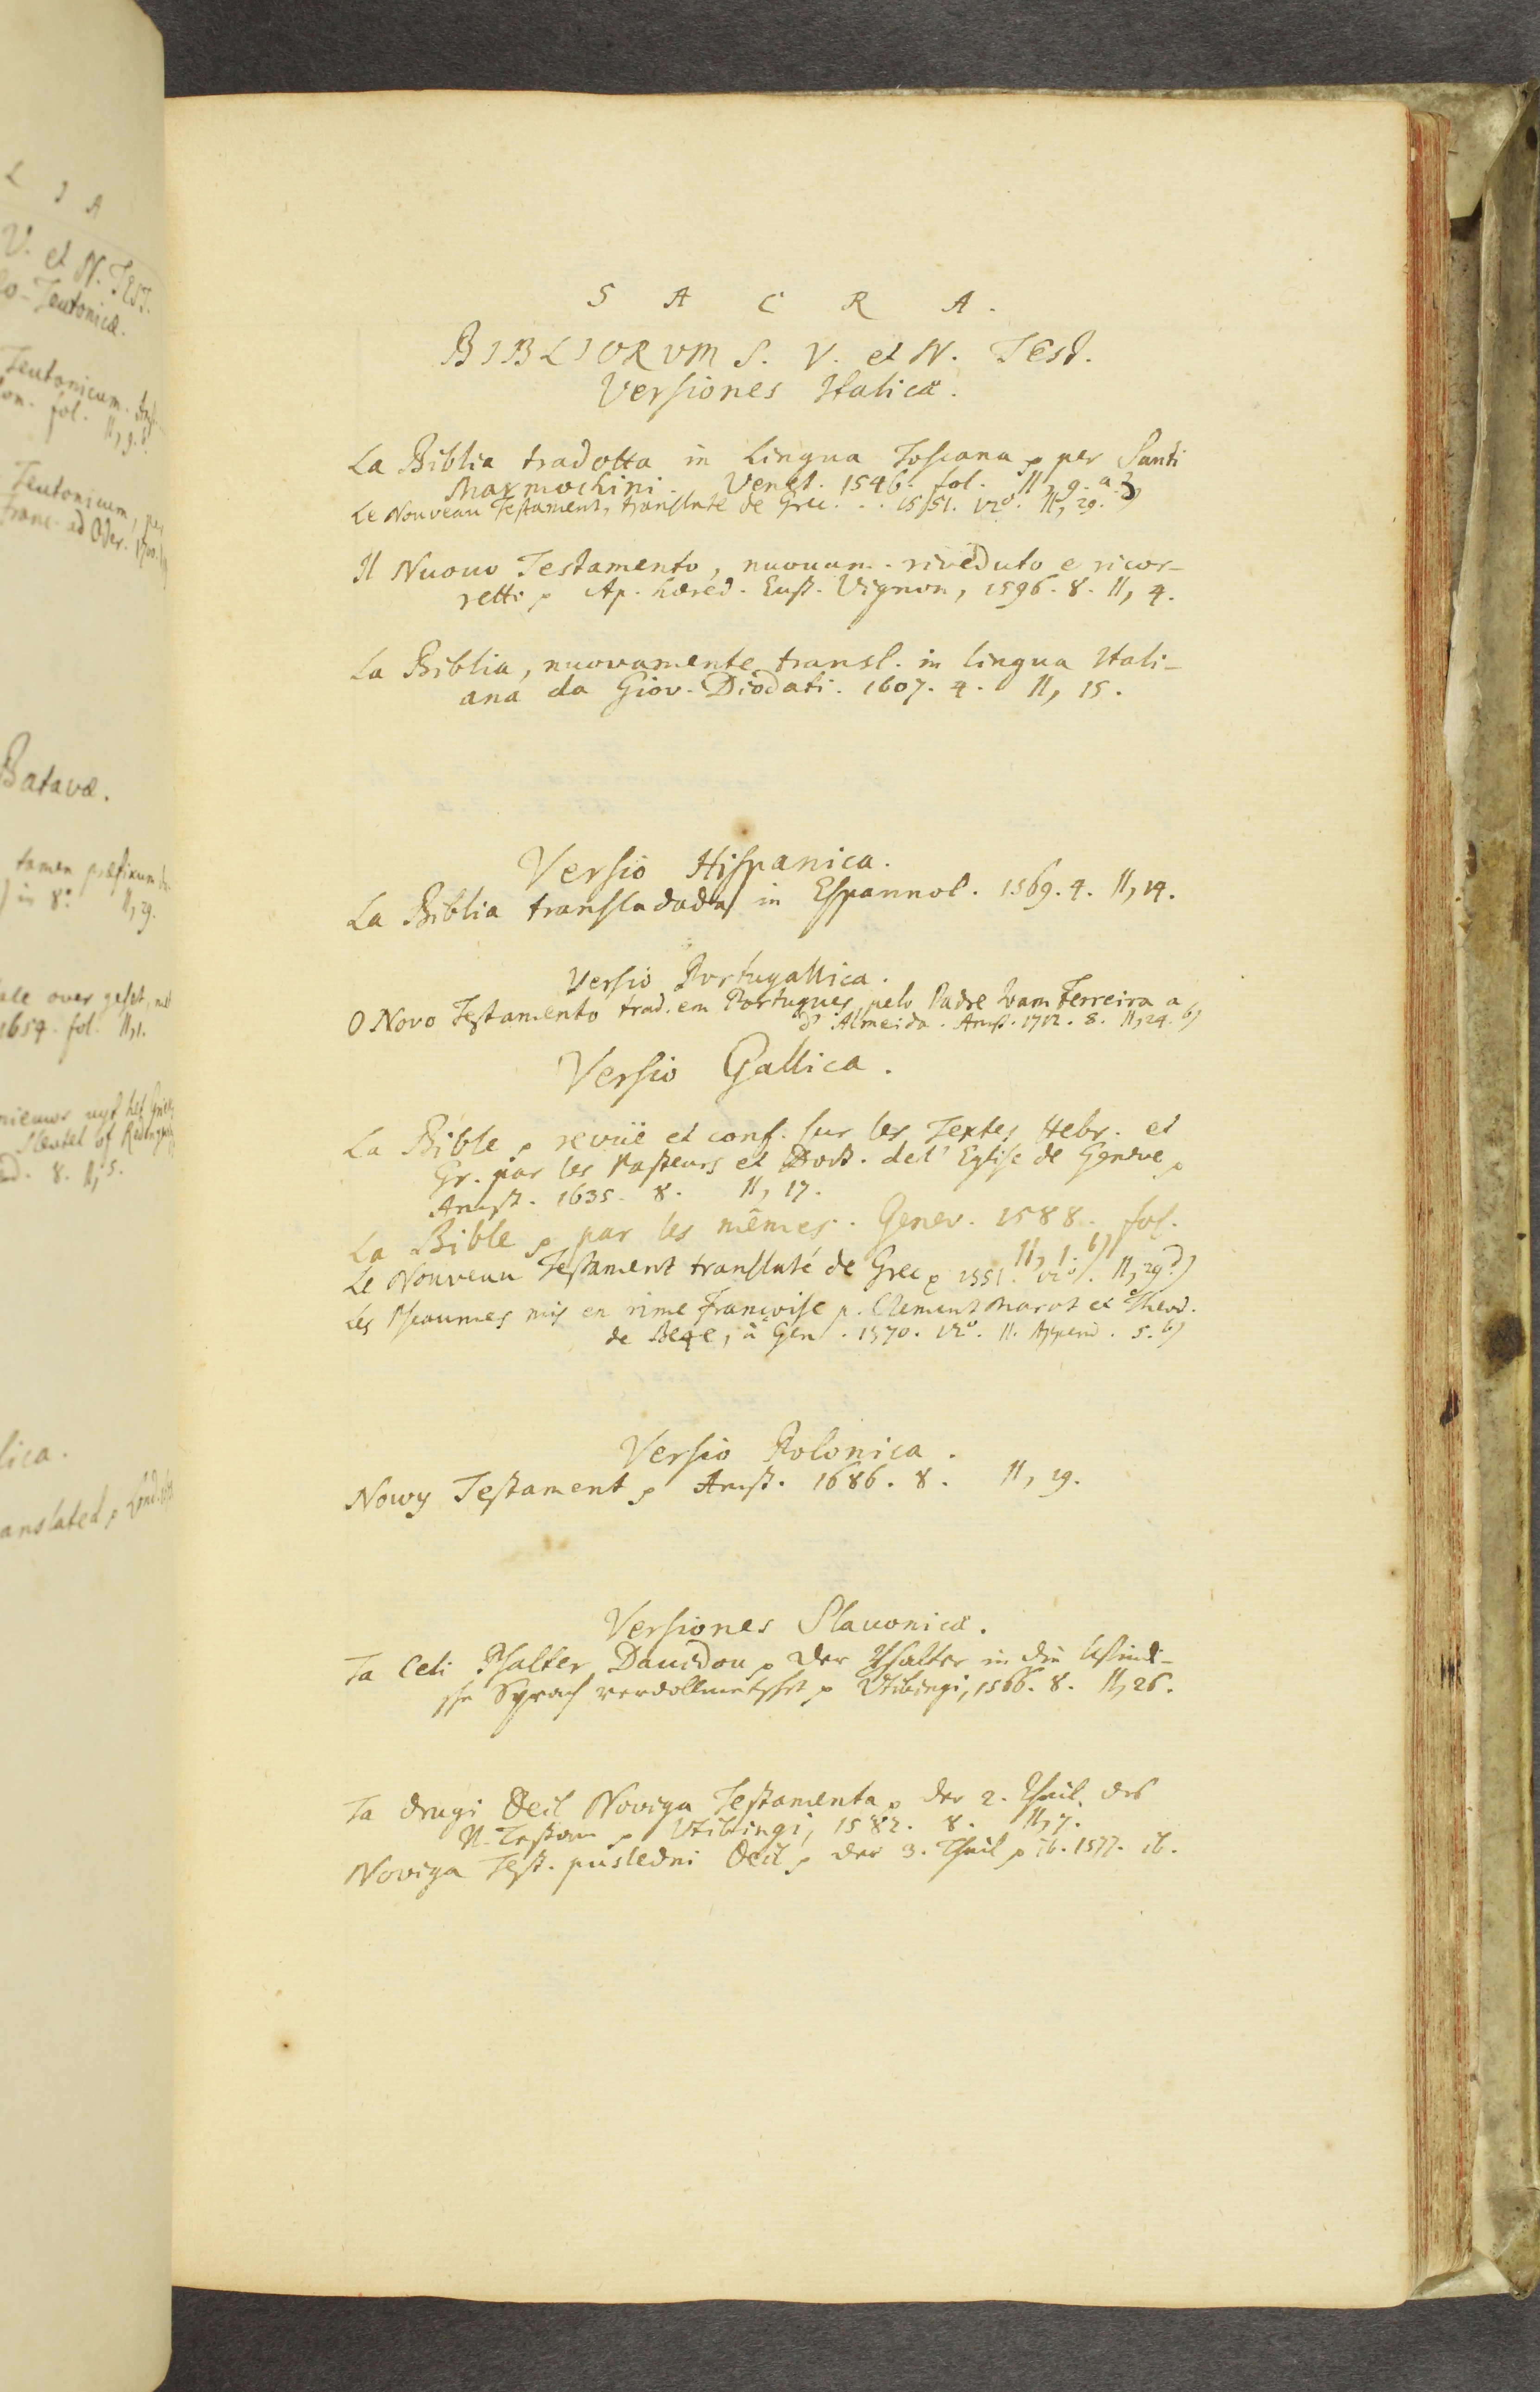 L I A
V. et N. TEST.
lo-Teutonicæ.
Teutonicum. Amst.
fol. II, 9. b.
Teutonicum, per
Franc. ad Oder. 1700.
Batavæ.
tamen præfixum
in 8° II, 29.
over geset, met
1654. fol. II, 1.
uyt het Griex
Sleutel of
8. II, 5.
lica.
anslated, Lond.
S A C R A.
BIBLIORVM S. V. et N. Test.
Versiones Italicæ.
La Biblia tradotta in Lingua Toscana p per Santi
Marmochini. Venet. 1546. fol. II, 9. a.
Le Nouveau Testament, translaté de Grec... 1551. 12°. II, 29.
Il Nuouo Testamento, nuouam. riveduto e ricor-
retto p Ap. hæred. Eust. Vignon, 1596. 8. II, 4.
La Biblia, nuovamente transl. in lingua Itali-
ana da Giov. Diodati. 1607. 4. II, 15.
Versio Hispanica.
La Biblia transladada in Espannol. 1569. 4. II, 14.
Versio Portugallica.
O Novo Testamento trad. em Portugues, pelo Padre Ioam Ferreira a
d' Almeida. Amst. 1712. 8. II, 24. b)
Versio Gallica.
La Bible p revüe et conf. sur les Textes Hebr. et
Gr. par les Pasteurs et Doct. de l' Eglise de Geneve p
Amst. 1635. 8. II, 17.
La Bible p par les mêmes. Genev. 1588. fol.
II, 1. b)
Le Nouveau Testament translaté de Grec p 1551. 12°. II, 29.)
Les Pseaumes mis en rime Françoise p. Clement Marot et Theod.
de Beze, à Gen. 1570. 12°. II. Append. 5. b)
Versio Polonica.
Nowy Testament p Amst. 1686. 8. II, 29.
Versiones Slauonicæ.
Ta Celi Psalter Dauidou p Der Psalter in die Windi-
sche Sprach verdollmetscht p Vtibingi, 1566. 8. II, 26.
Ta drugi Deil Noviga Testamenta p der 2. Theil des
N. Testam p Vtibingi, 1582. 8. II, 7.
Noviga Test. pusledni Deil p der 3. Theil p ib. 1577. ib.